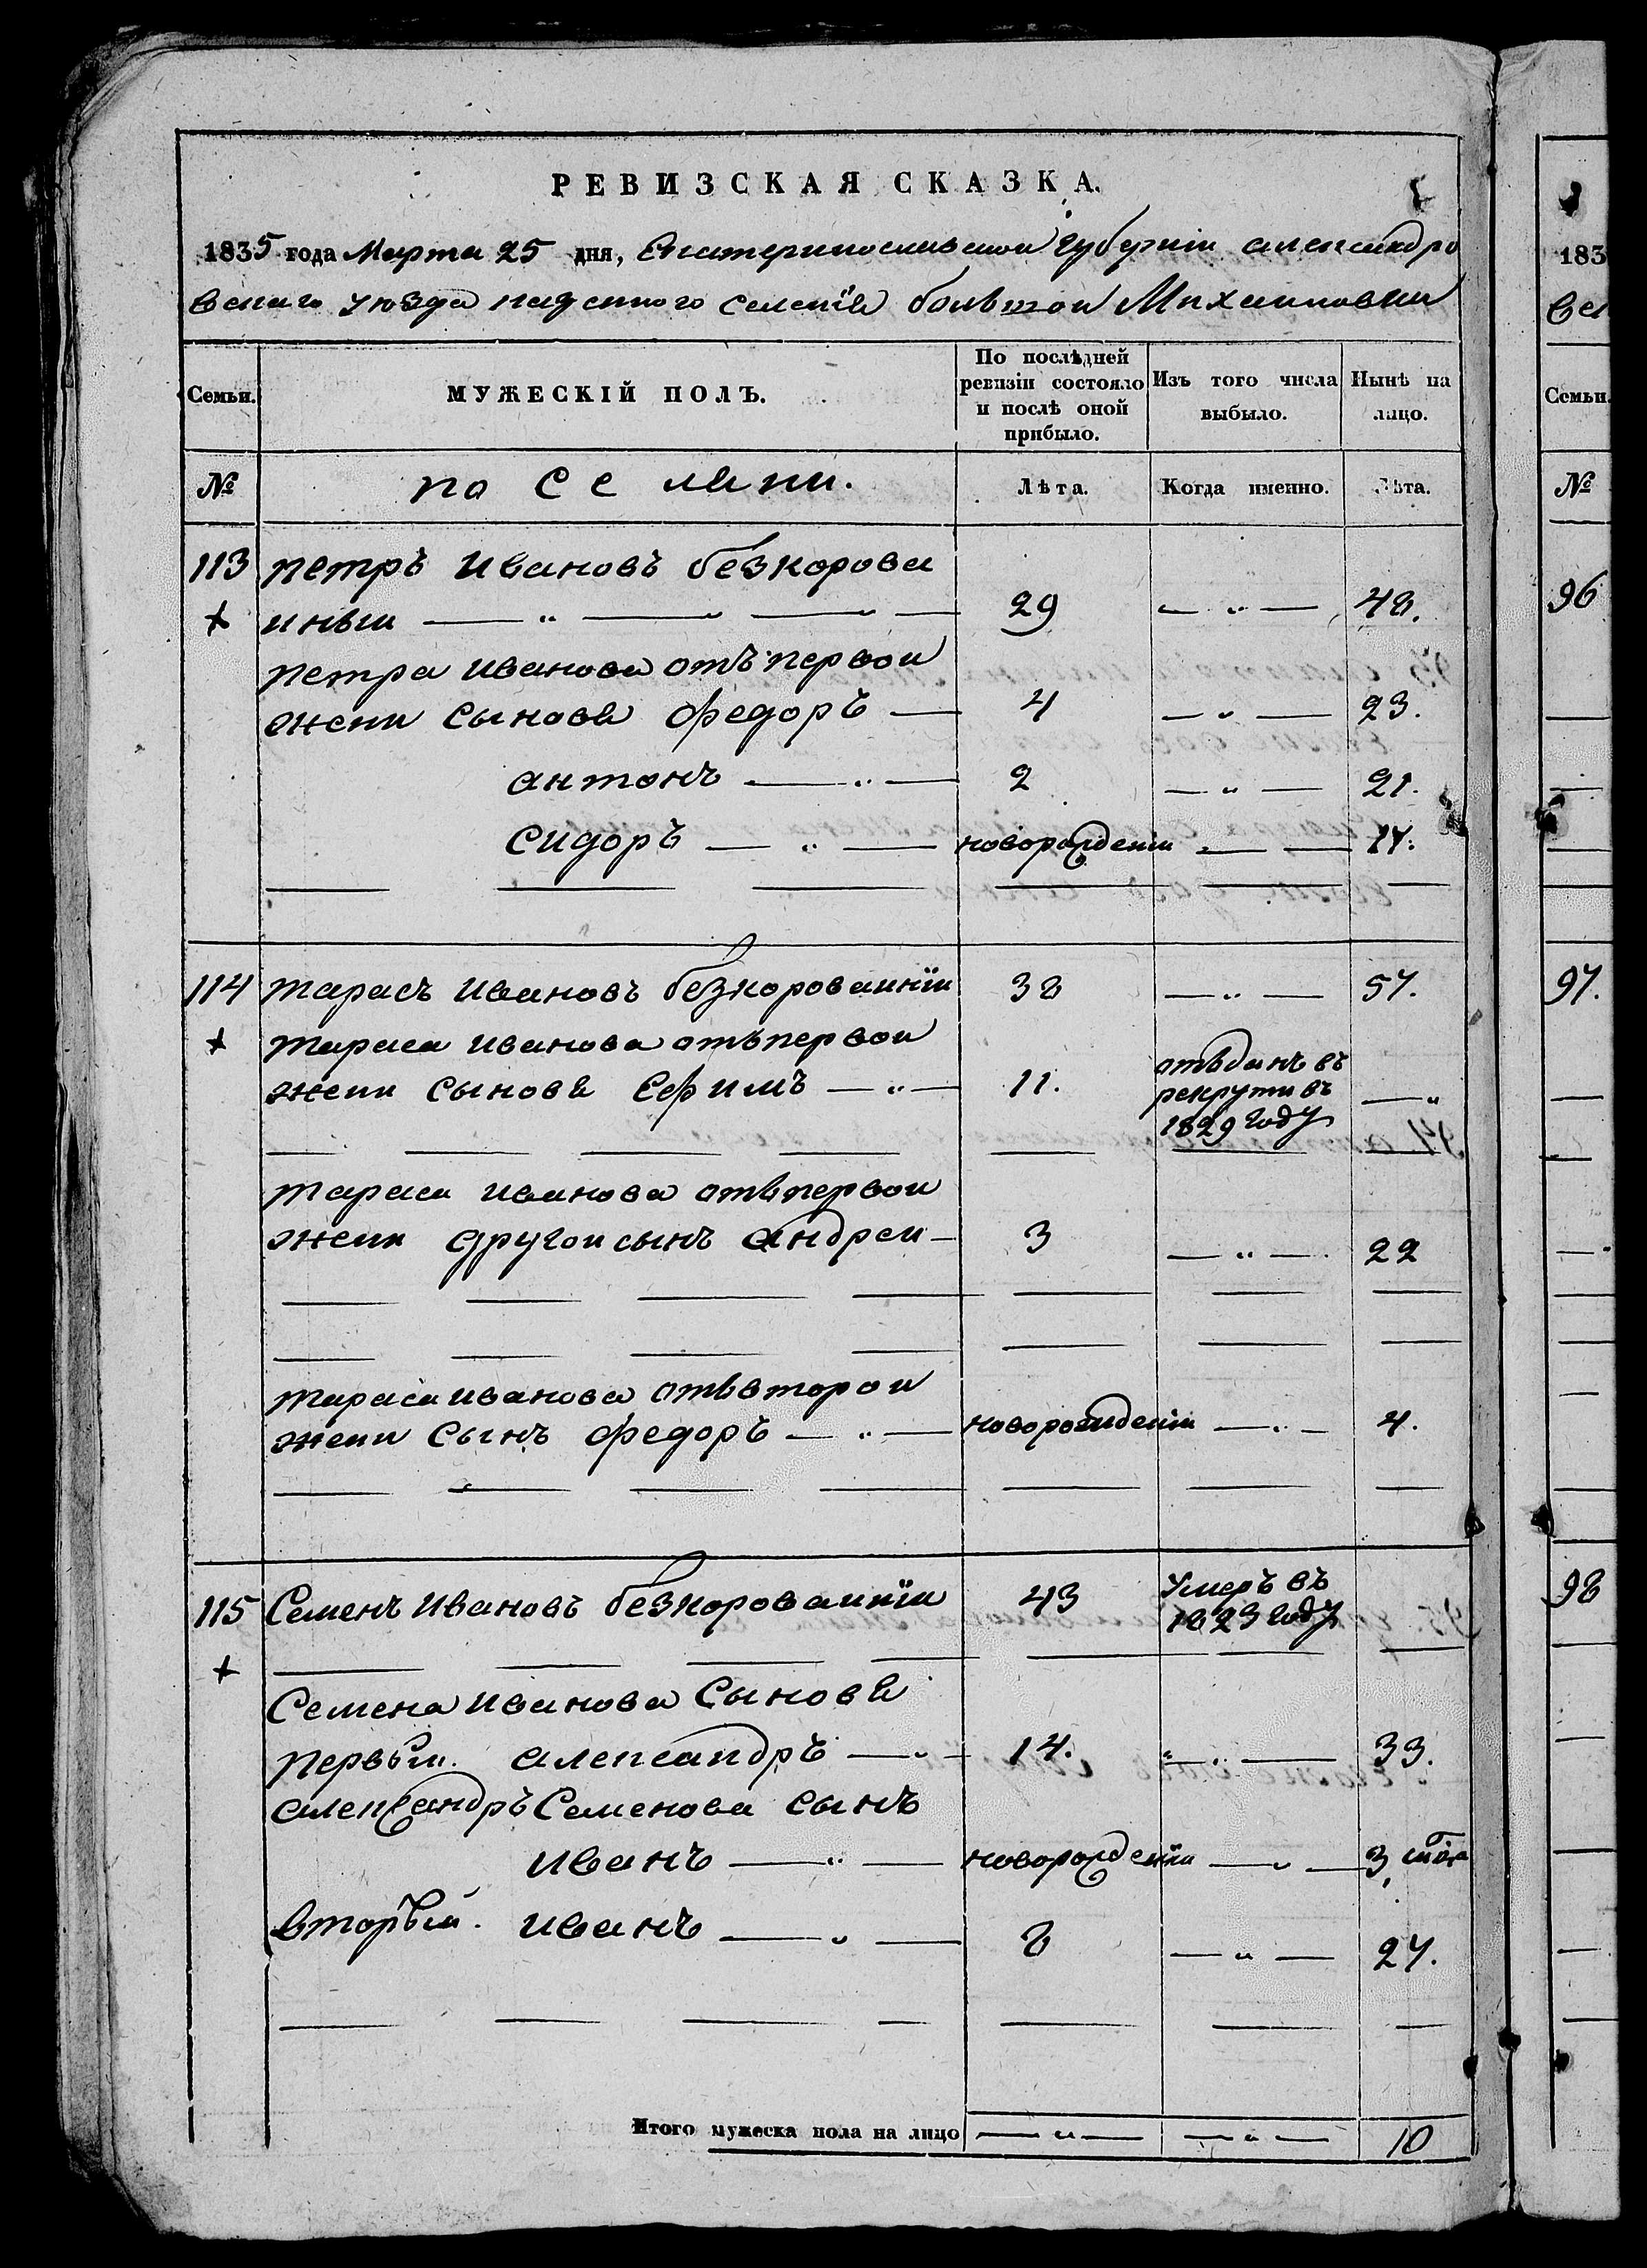 РЕВИЗСКАЯ СКАЗКА.
1835 года Марта 25 дня, Екатеринославской Губерніи александро
вскаго уюзда казенного селенія большои Михаиловки
Семьи.
МУЖЕСКІЙ ПОЛЪ.
По послѣдней ревизіи состояло и послѣ оной прибыло.
Изъ того числа выбыло.
Нынѣ на лицо.
№
Лѣта.
Когда именно.
Лѣта.
113 петръ Ивановъ безкорова
иныи — 29 — 48.
петра Иванова отъ первои
жени сыновя федоръ — 4 — 23.
антонъ — 2 — 21.
сидоръ — новорожденіи — 17.
114 тарасъ Ивановъ безкороваиніи 38 — 57.
тараса Иванова отъ первои
жени сыновя Ефимъ — 11. отъданъ въ
рекрути въ
1829 году
тараса Иванова отъ первои
жени другои сынъ андреи — 3 — 22
тараса Иванова отъ второи
жени сынъ федоръ — новорожденіи — 4.
115 Семенъ Ивановъ безкороваиніи 43 Умеръ въ
1823 году
Семена Иванова Сыновя
первыи. александръ — 14. — 33.
александръ Семенова сынъ
иванъ — новорожденіи — 3
вторыи. иванъ — 8 — 27.
Итого мужеска пола на лицо — — 10
183
Семьи.
№
96
97.
98